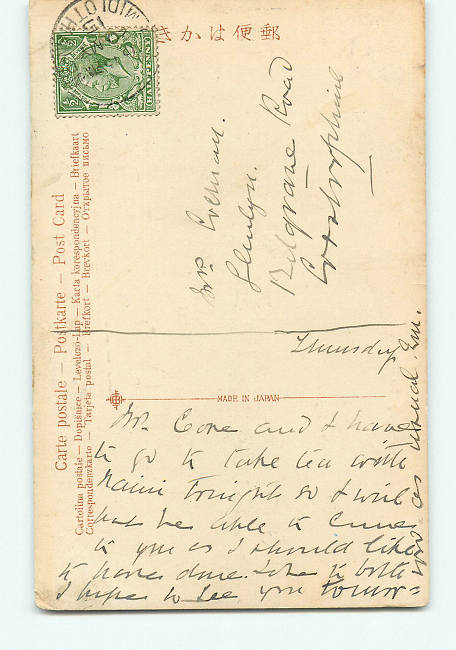 郵便はかき
½ HALFPENNY ½
Carte postale — Postkarte — Post Card
Cartolina postale — Dopisnice — Levelező-Lap — Karta korespondencyjna — Briefkaart
Correspondenzkarte — Tarjeta postal — Brefkort — Brevkort — Открытое письмо
Mrs. Coleman.
Belgrave Road
Corstorphine
Thursday
MADE IN JAPAN
Mrs. Core and I have
to go to take tea with
tonight so I will
not be able to come
to you as I should like
to have done. Love to both
I hope to see you tomorr=
ow as usual.